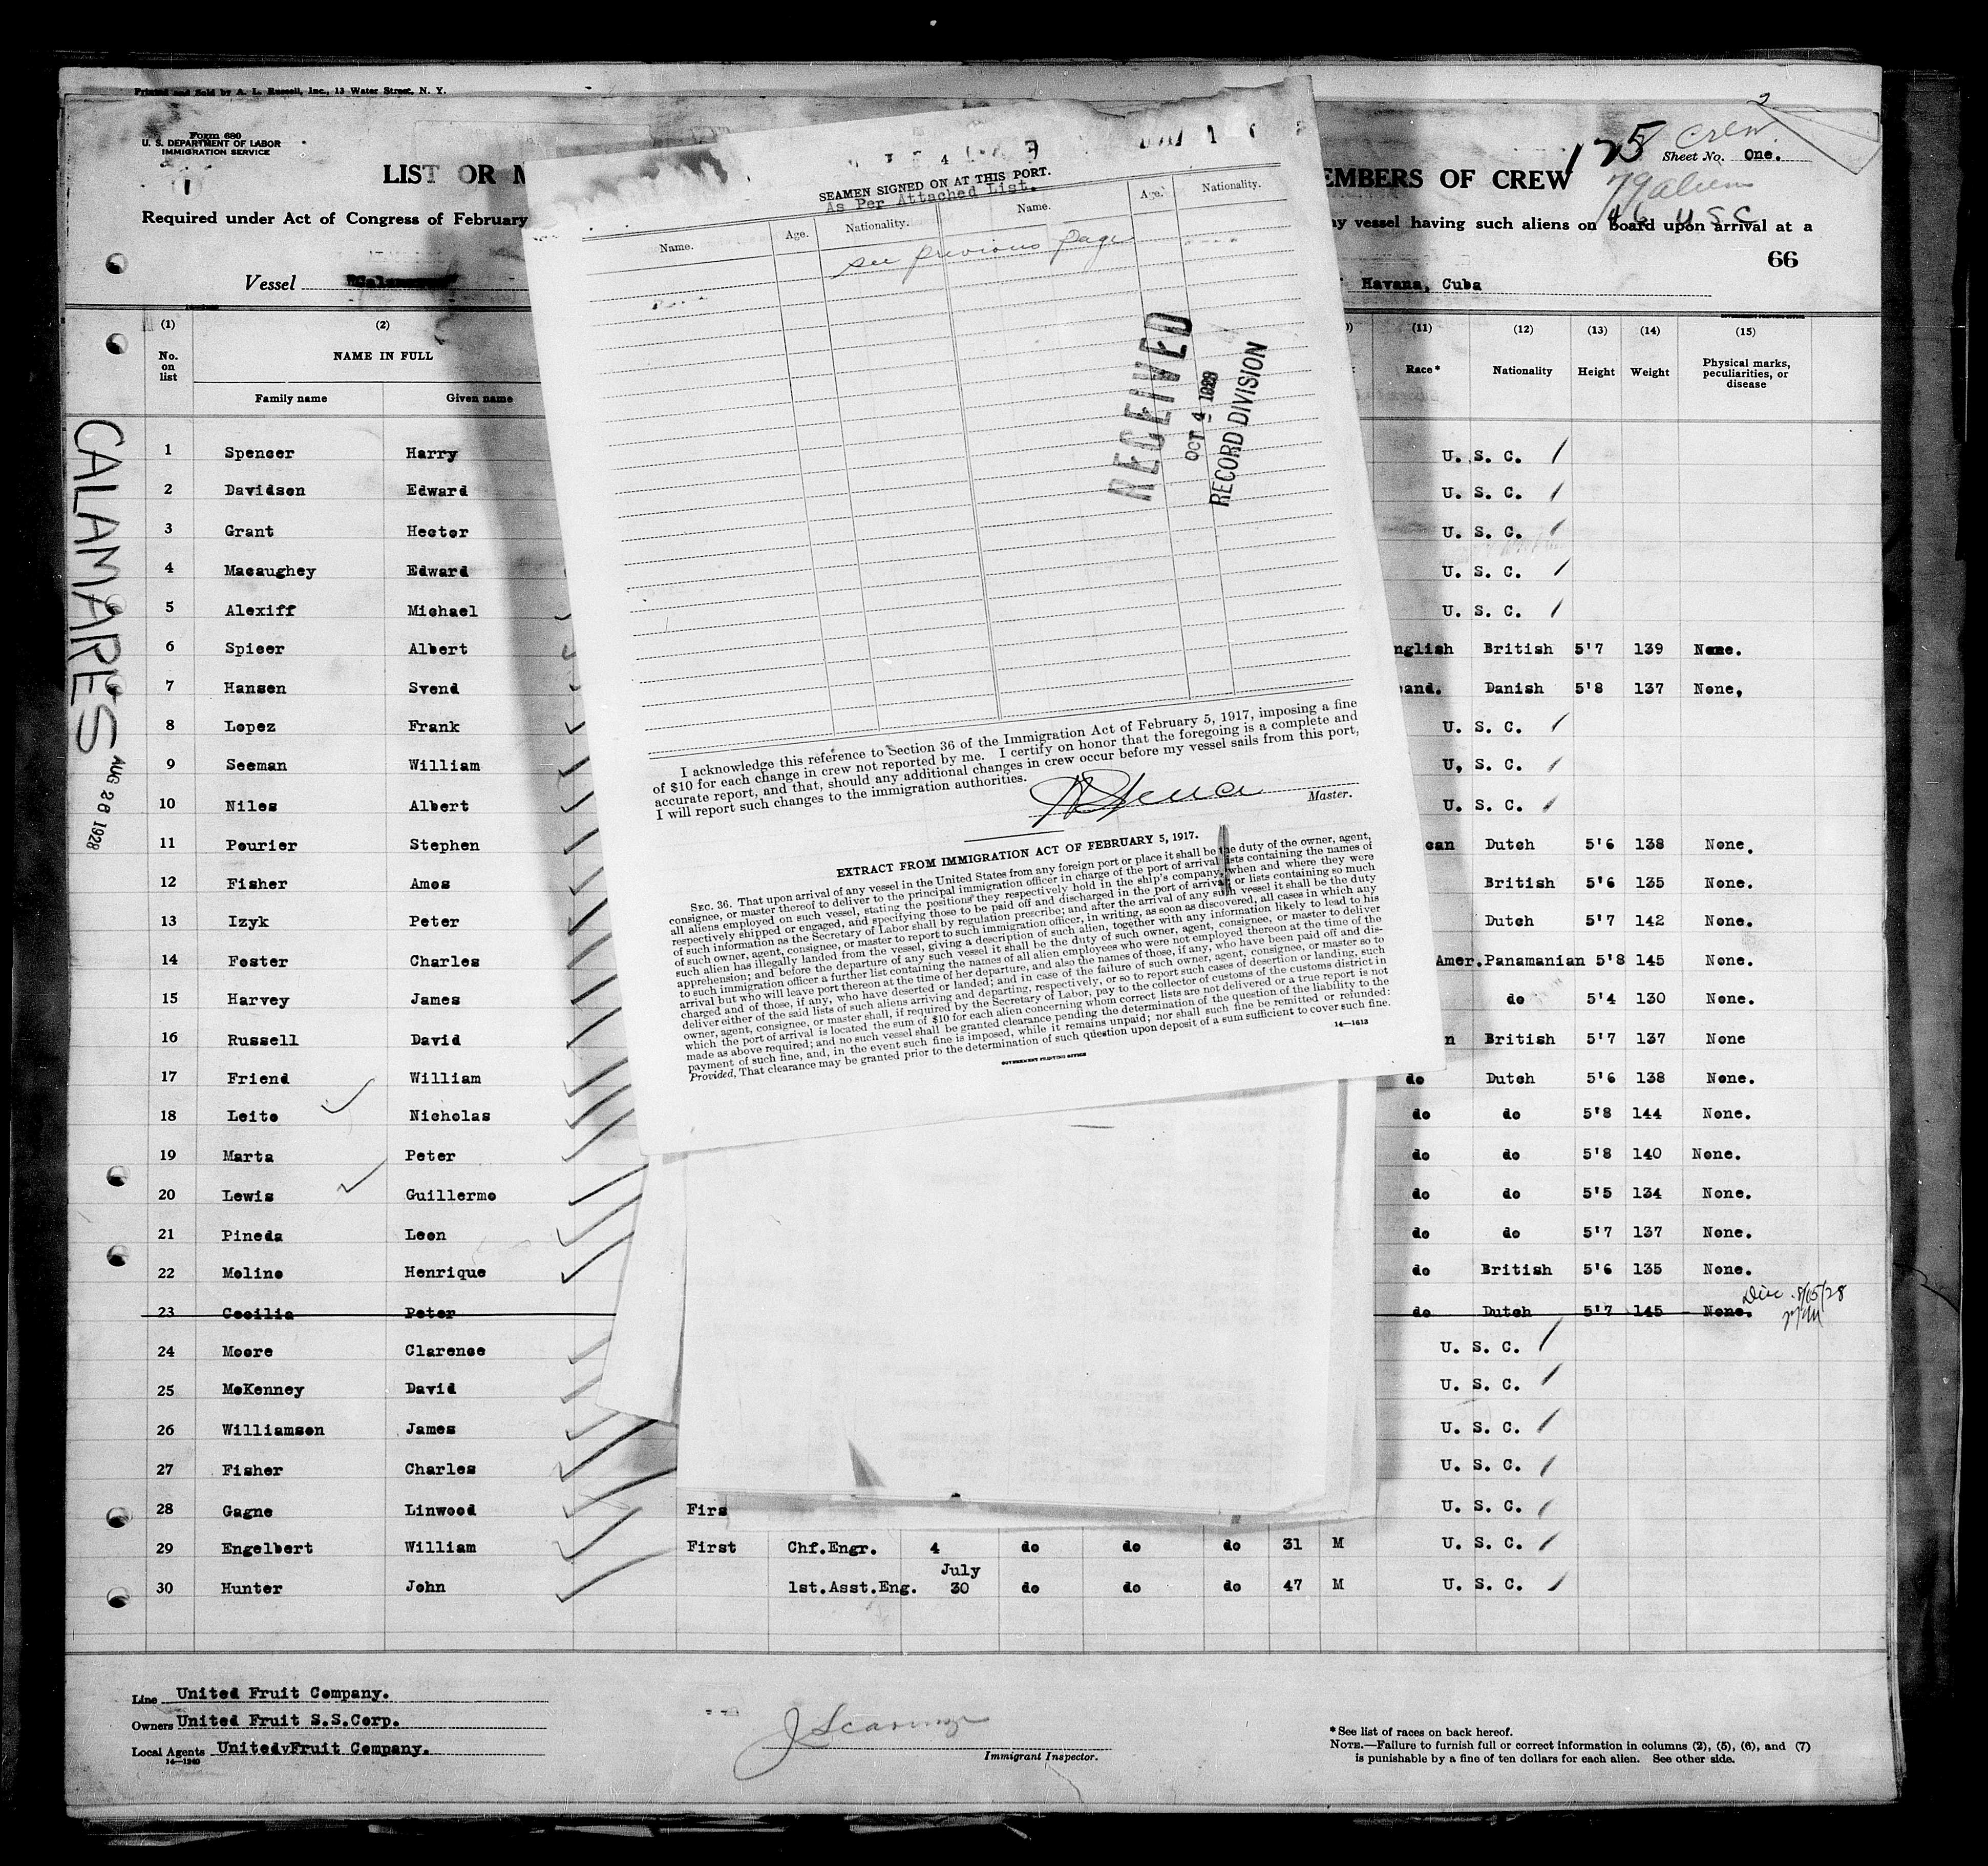 Printed and Sold by A. L. Russell, Inc., 13 Water Street, N. Y.
Form 680
U. S. DEPARTMENT OF LABOR
IMMIGRATION SERVICE
LIST OR M
EMBERS OF CREW
175 Crew
Sheet No. One.
79 aliens
46 U S C
Required under Act of Congress of February
ny vessel having such aliens on board upon arrival at a
66
Vessel
Havana, Cuba
(1) (2) (11) (12) (13) (14) (15)
No. on list
NAME IN FULL
Family name Given name
Race* Nationality Height Weight Physical marks, peculiarities, or disease
CALAMARES
AUG 28 1928
1 Spencer Harry U. S. C.
2 Davidson Edward U. S. C.
3 Grant Hector U. S. C.
4 Macaughey Edward U. S. C.
5 Alexiff Michael U. S. C.
6 Spicer Albert nglish British 5'7 139 None.
7 Hansen Svend and. Danish 5'8 137 None,
8 Lopez Frank U. S. C.
9 Seeman William U, S. C.
10 Niles Albert U. S. C.
11 Pourier Stephen can Dutch 5'6 138 None.
12 Fisher Amos British 5'6 135 None.
13 Izyk Peter Dutch 5'7 142 None.
14 Foster Charles Amer. Panamanian 5'8 145 None.
15 Harvey James do 5'4 130 None.
16 Russell David n British 5'7 137 None
17 Friend William do Dutch 5'6 138 None.
18 Leito Nicholas do do 5'8 144 None.
19 Marta Peter do do 5'8 140 None.
20 Lewis Guillermo do do 5'5 134 None.
21 Pineda Leon do do 5'7 137 None.
22 Moline Henrique do British 5'6 135 None.
23 Cecilia Peter do Dutch 5'7 145 None. 8/15/28
24 Moore Clarence U. S. C.
25 McKenney David U. S. C.
26 Williamson James U. S. C.
27 Fisher Charles U. S. C.
28 Gagne Linwood Firs U. S. C.
29 Engelbert William First Chf.Engr. 4 do do do 31 M U. S. C.
30 Hunter John 1st.Asst.Eng. July 30 do do do 47 M U. S. C.
Line United Fruit Company.
Owners United Fruit S.S.Corp.
Local Agents UnitedvFruit Company.
14—1240
Immigrant Inspector.
*See list of races on back hereof.
NOTE.—Failure to furnish full or correct information in columns (2), (5), (6), and (7)
is punishable by a fine of ten dollars for each alien. See other side.
SEAMEN SIGNED ON AT THIS PORT.
As Per Attached List.
Name. Age. Nationality. Name. Age. Nationality.
see previous page
RECEIVED
OCT 4 1928
RECORD DIVISION
I acknowledge this reference to Section 36 of the Immigration Act of February 5, 1917, imposing a fine
of $10 for each change in crew not reported by me. I certify on honor that the foregoing is a complete and
accurate report, and that, should any additional changes in crew occur before my vessel sails from this port,
I will report such changes to the immigration authorities.
Master.
EXTRACT FROM IMMIGRATION ACT OF FEBRUARY 5, 1917.
SEC. 36. That upon arrival of any vessel in the United States from any foreign port or place it shall be the duty of the owner, agent,
consignee, or master thereof to deliver to the principal immigration officer in charge of the port of arrival lists containing the names of
all aliens employed on such vessel, stating the positions they respectively hold in the ship's company, when and where they were
respectively shipped or engaged, and specifying those to be paid off and discharged in the port of arrival; or lists containing so much
of such information as the Secretary of Labor shall by regulation prescribe; and after the arrival of any such vessel it shall be the duty
of such owner, agent, consignee, or master to report to such immigration officer, in writing, as soon as discovered, all cases in which any
such alien has illegally landed from the vessel, giving a description of such alien, together with any information likely to lead to his
apprehension; and before the departure of any such vessel it shall be the duty of such owner, agent, consignee, or master to deliver
to such immigration officer a further list containing the names of all alien employees who were not employed thereon at the time of the
arrival but who will leave port thereon at the time of her departure, and also the names of those, if any, who have been paid off and dis-
charged and of those, if any, who have deserted or landed; and in case of the failure of such owner, agent, consignee, or master so to
deliver either of the said lists of such aliens arriving and departing, respectively, or so to report such cases of desertion or landing, such
owner, agent, consignee, or master shall, if required by the Secretary of Labor, pay to the collector of customs of the customs district in
which the port of arrival is located the sum of $10 for each alien concerning whom correct lists are not delivered or a true report is not
made as above required; and no such vessel shall be granted clearance pending the determination of the question of the liability to the
payment of such fine, and, in the event such fine is imposed, while it remains unpaid; nor shall such fine be remitted or refunded:
Provided, That clearance may be granted prior to the determination of such question upon deposit of a sum sufficient to cover such fine.
14—1613
GOVERNMENT PRINTING OFFICE